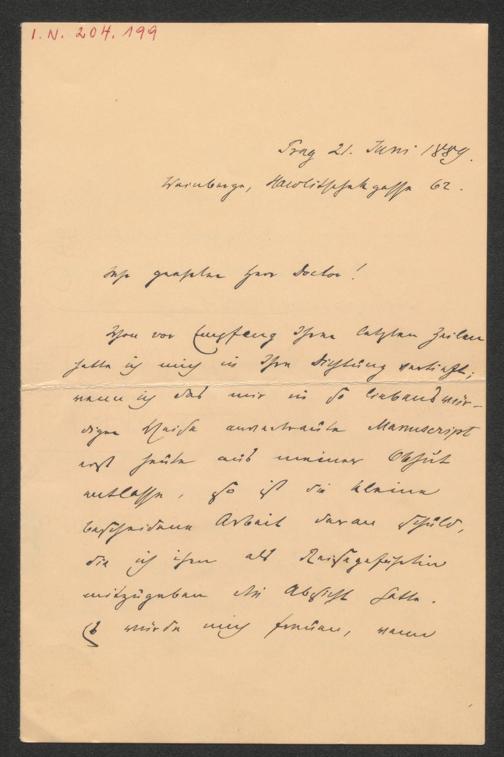 I.N. 204.199
Prag 21. Juni 1889.
Weinberge, Hawlitschekgasse 62.
Sehr geehrter Herr Doctor!
Schon vor Empfang Ihrer letzten Zeilen
hatte ich mich in Ihre Dichtung vertieft;
wenn ich das mir in so liebenswür-
diger Weise anvertraute Manuscript
erst heute aus meiner Obhut
entlasse, so ist die kleine
bescheidene Arbeit daran schuld,
die ich ihm als Reisegefährtin
mitzugeben die Absicht hatte.
Es würde mich freuen, wenn